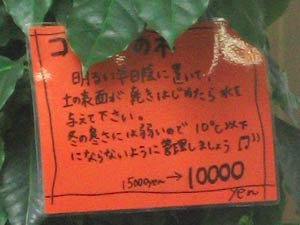 コ の木
明るい半日陰に置いて!
土の表面が乾きはじめたら水を
与えて下さい。
冬の寒さには弱いので10℃以下
にならないように管理しましょう♫
15000yen→10000
yen